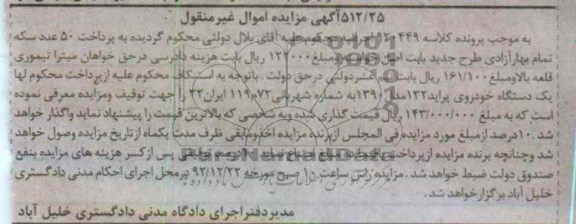 ۵۱۲/۲۵آگهی مزایده اموال غیرمنقول
به موجب پرونده کلاسه ۹۲۰۴۴۹ اجرا محکوم علیه آقای بلال دولتی محکوم گردیده به پرداخت ۵۰ عدد سکه
تمام بهار آزادی طرح جدید بابت اصل ومبلغ ۱۲۲۰۰۰ ریال بابت هزینه دادرسی درحق خواهان میترا تیموری
قلعه بالاومبلغ ۱۶۱/۱۰۰ ریال بابت نیم عشردولتی درحق دولت . باتوجه به استنکاف محکوم علیه ازپرداخت محکوم لها
یک دستگاه خودروی پراید۱۳۲مدل ۱۳۹۰به شماره شهربانی ایران۳۲ را جهت توقیف ومزایده معرفی نموده
است که به مبلغ ۱۴۳/۰۰۰/۰۰۰ ریال قیمت گذاری شده وبه شخصی که بالاترین قیمت را پیشنهاد نماید واگذار خواهد
شد .۱۰درصد ازمبلغ مورد مزایده فی المجلس ازبرنده مزایده اخذومابقی ظرف مدت یکماه ازتاریخ مزایده وصول خواهد
شد وچنانچه برنده مزایده ازپرداخت پس ازکسر هزینه های مزایده بنفع
صندوق دولت ضبط خواهد شد . مزایده راس ساعت ۱۰ صبح مورخه ۹۲/۱۲/۲۲ درمحل اجرای احکام مدنی دادگستری
خلیل آباد برگزارخواهد شد.
مدیردفتراجرای دادگاه مدنی دادگستری خلیل آباد